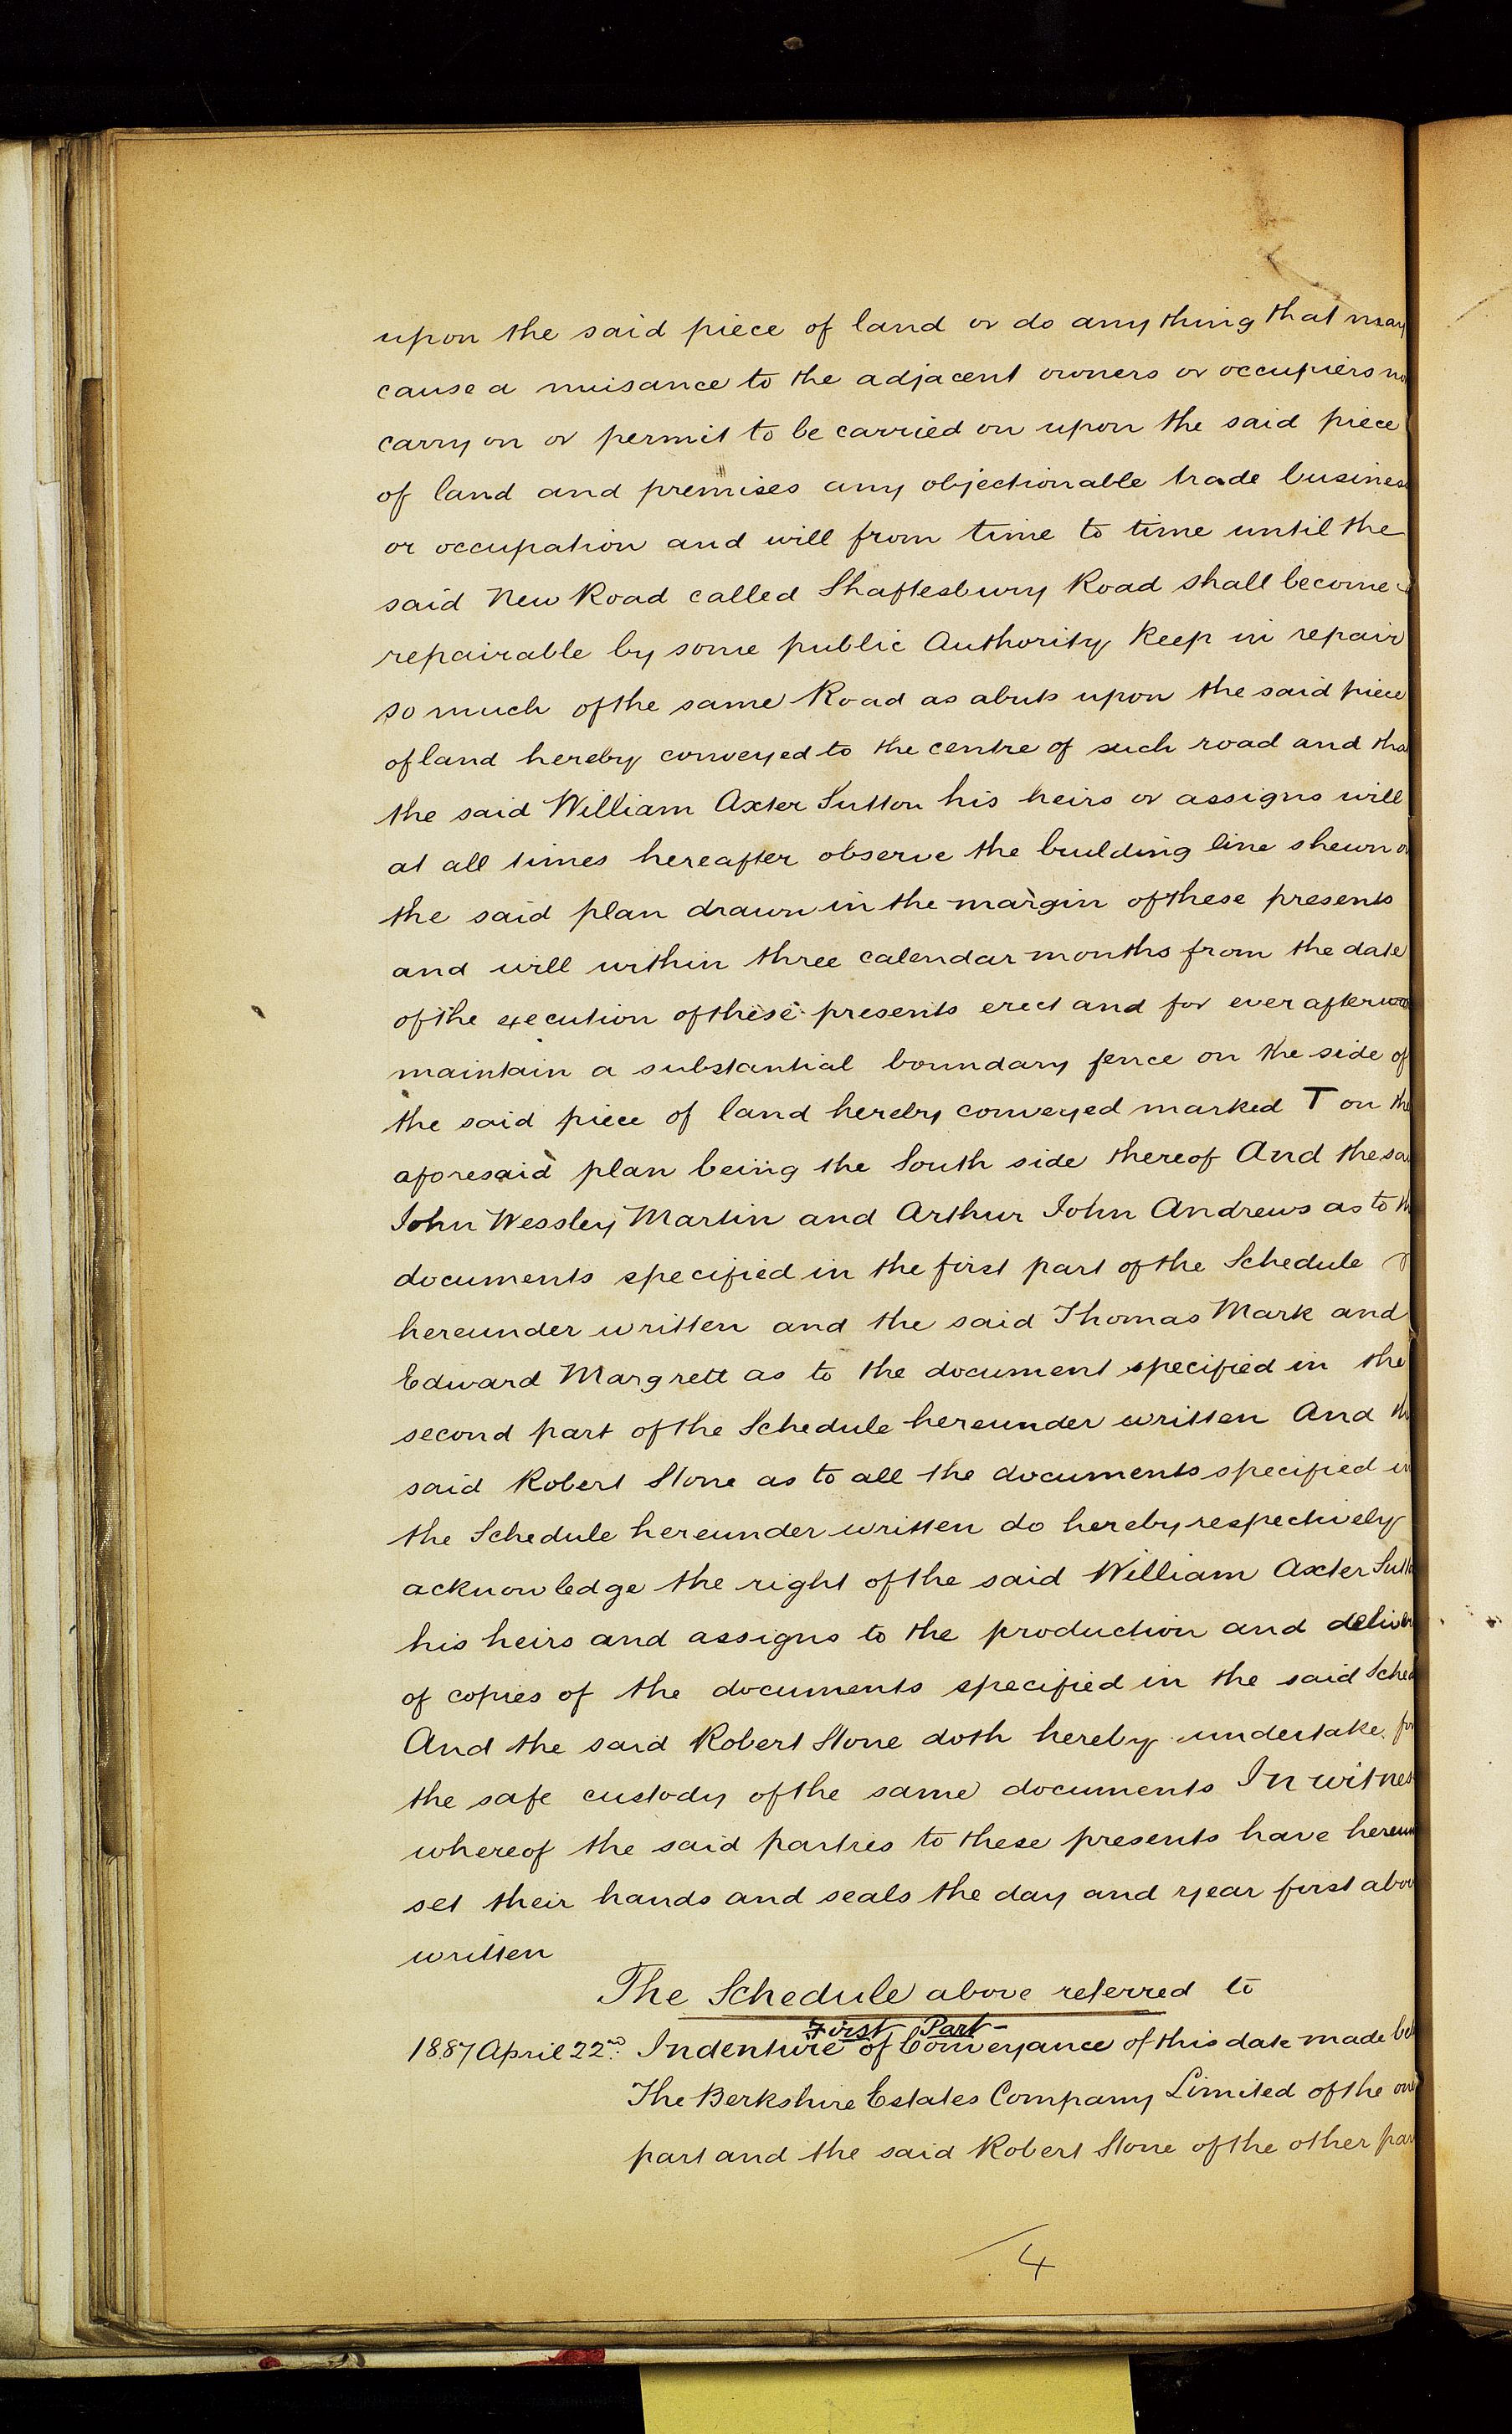 upon the said piece of land or do any thing that may
cause a nuisance to the adjacent owners or occupiers no
carry on or permit to be carried on upon the said piece
of land and premises any objectionable trade busines
or occupation and will from time to time until the
said New Road called Shaftesbury Road shall become
repairable by some public Authority keep in repair
so much of the same Road as abuts upon the said piece
of land hereby conveyed to the centre of such road and tha
the said William Axter Sutton his heirs or assigns will
at all times hereafter observe the building line shewn o
the said plan drawn in the margin of these presents
and will within three calendar months from the date
of the execution of these presents erect and for ever afterwa
maintain a substantial boundary fence on the side of
the said piece of land hereby conveyed marked T on the
aforesaid plan being the South side thereof And the sa
John Wessley Martin and Arthur John Andrews as to th
documents specified in the first part of the Schedule
hereunder written and the said Thomas Mark and
Edward Margrett as to the document specified in the
second part of the Schedule hereunder written And th
said Robert Stone as to all the documents specified in
the Schedule hereunder written do hereby respectively
acknowledge the right of the said William Axter Sutto
his heirs and assigns to the production and deliver
of copies of the documents specified in the said Sched
And the said Robert Stone doth hereby undertake for
the safe custody of the same documents In witnes
whereof the said parties to these presents have hereun
set their hands and seals the day and year first abov
written
The Schedule above referred to
First Part
1887 April 22nd. Indenture of Conveyance of this date made bet
The Berkshire Estates Company Limited of the one
part and the said Robert Stone of the other par
4